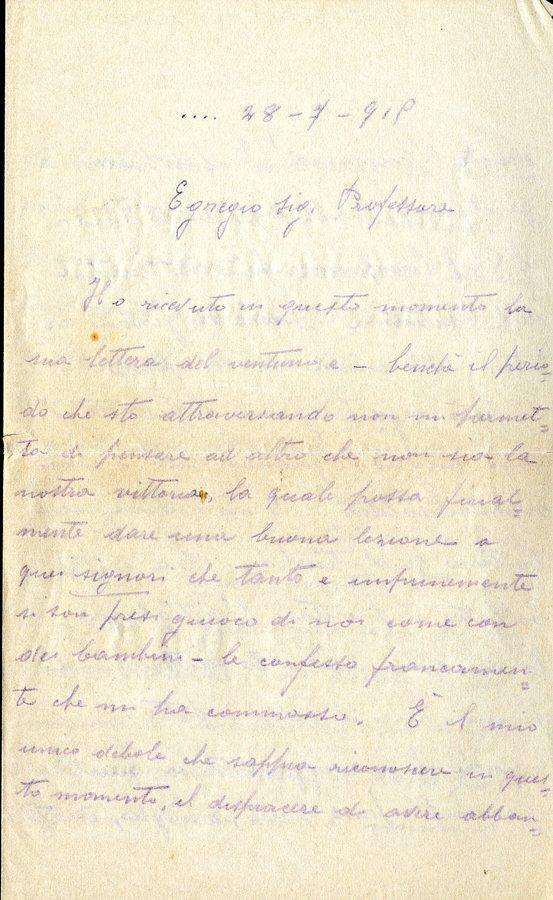 .... 28 - 7 - 915
Egregio Sig. Professore
Ho ricevuto in questo momento la
sua lettera del ventuno e - benchè il perio=
do che sto attraversando non mi permet=
ta di pensare ad altro che non sia la
nostra vittoria, la quale possa final=
mente dare una buona lezione a
quei signori che tanto e impunemente
si son presi giuoco di noi come con
dei bambini - le confesso francamen=
te che mi ha commosso. È il mio
unico debole che sappia riconoscere in ques=
to momento, il dispiacere di avere abban=